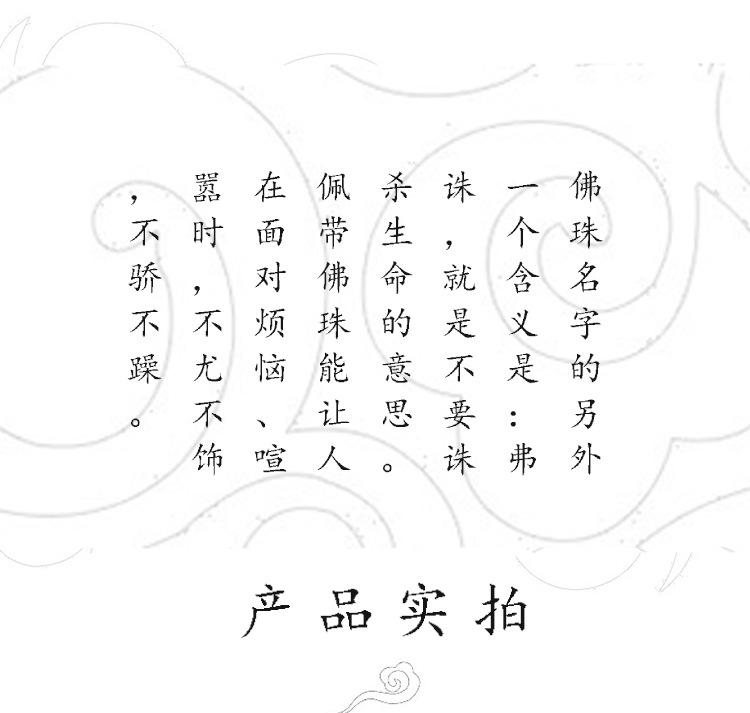 佛珠名字的另外
一个含义是：弗
诛，就是不要诛
杀生命的意思。
佩带佛珠能让人
在面对烦恼、喧
嚣时，不尤不饰
，不骄不躁。
产品实拍